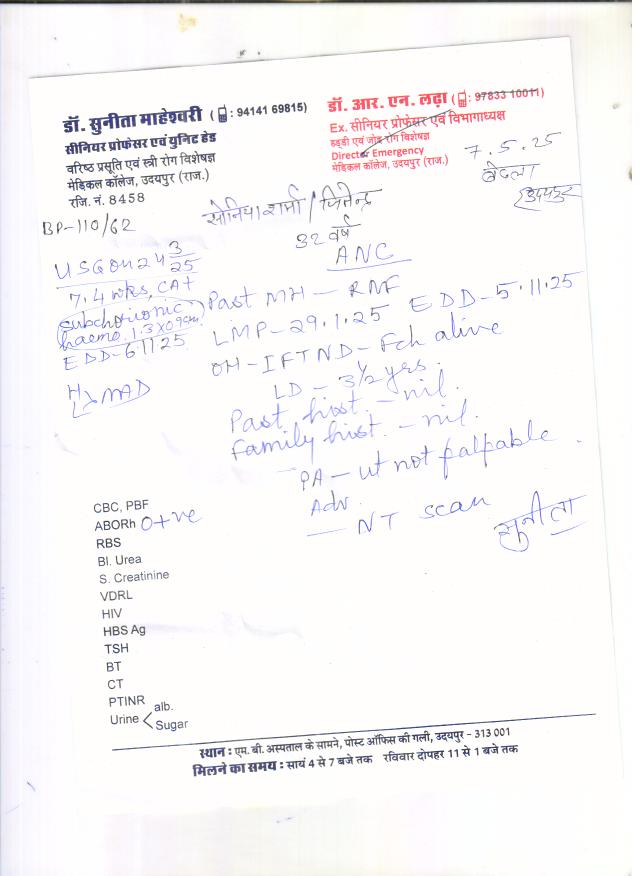 डॉ. सुनीता माहेश्वरी (: 94141 69815)
सीनियर प्रोफेसर एवं यूनिट हेड
वरिष्ठ प्रसूति एवं स्त्री रोग विशेषज्ञ
मेडिकल कॉलेज, उदयपुर (राज.)
रजि. नं. 8458
डॉ. आर. एन. लढ़ा (: 97833 10011)
Ex. सीनियर प्रोफेसर एवं विभागाध्यक्ष
हड्डी एवं जोड़ रोग विशेषज्ञ
Director Emergency
मेडिकल कॉलेज, उदयपुर (राज.)
7.5.25
बेदला
उदयपुर
BP-110/62
सोनिया शर्मा / जितेन्द्र
32 वर्ष
ANC
USG on 24 3/25
7.4 wks, CA+
subchorionic
haemo. 1.3x0.9cm
EDD-6 11 25
Past MH - RNF
LMP-29.1.25 EDD-5.11.25
OH-IFTND-Fch alive
LD - 3 1/2 yrs.
Past hist. - nil.
Family hist. - nil.
PA - ut not palpable.
Adv.
- NT scan
सुनीता
CBC, PBF
ABORh O+ve
RBS
Bl. Urea
S. Creatinine
VDRL
HIV
HBS Ag
TSH
BT
CT
PTINR
Urine < alb.
Sugar
स्थान : एम. बी. अस्पताल के सामने, पोस्ट ऑफिस की गली, उदयपुर - 313 001
मिलने का समय : सायं 4 से 7 बजे तक रविवार दोपहर 11 से 1 बजे तक